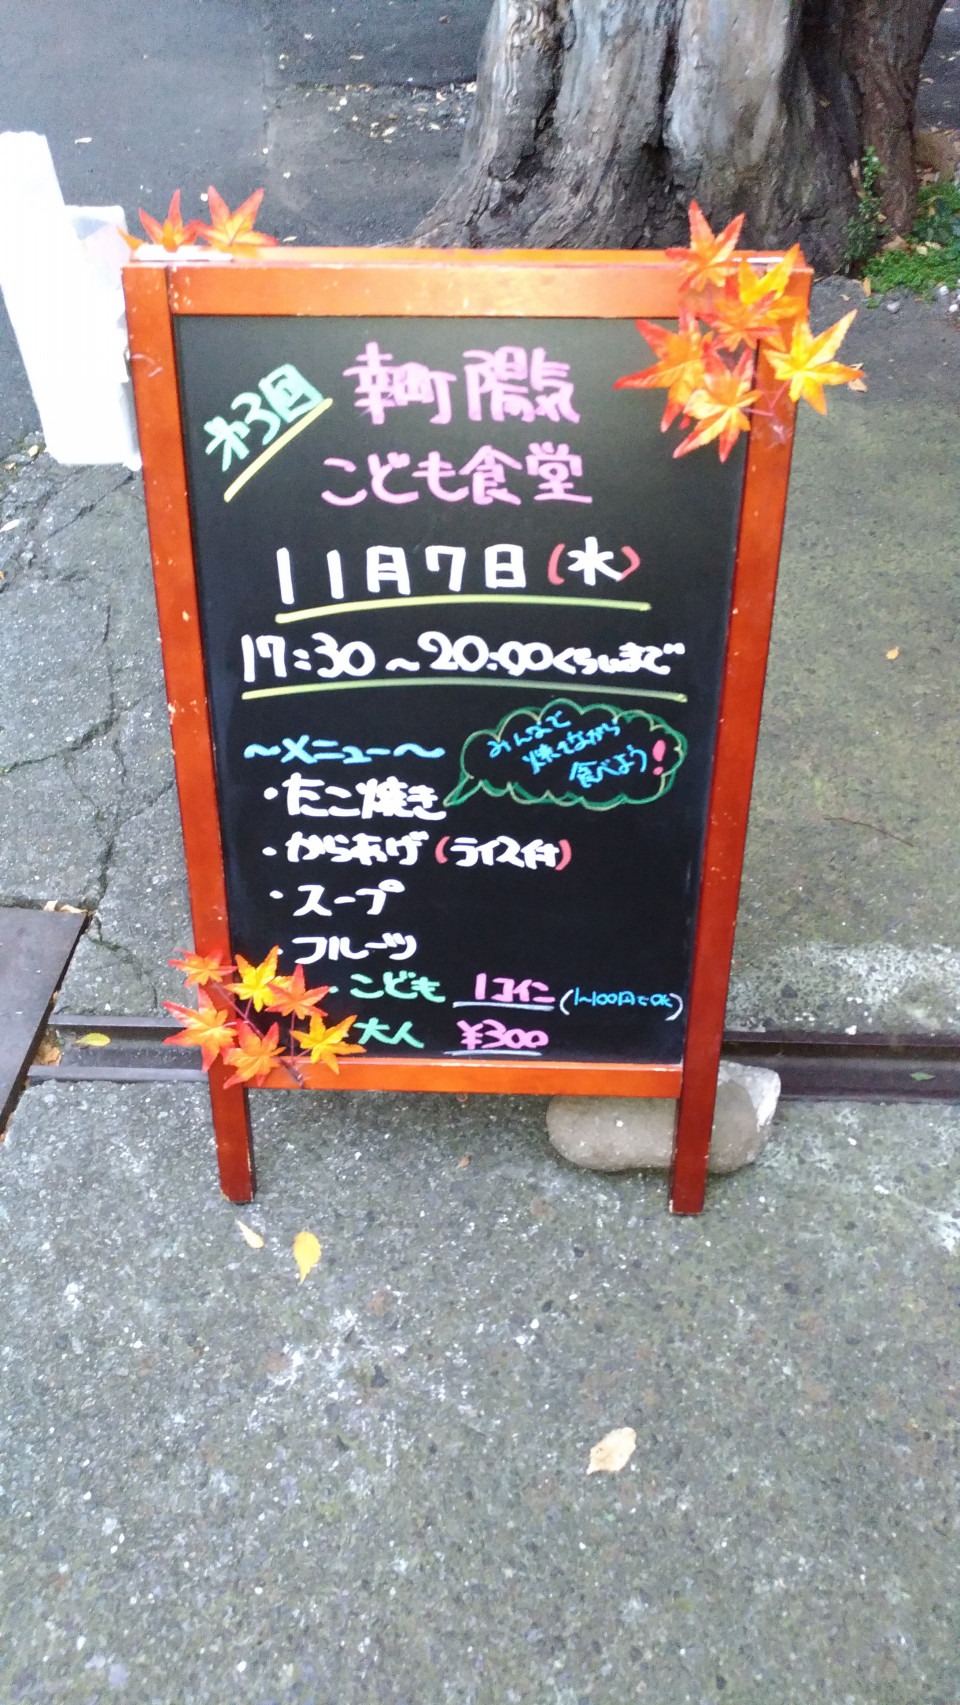 第3回
幸町 陽気
こども食堂
11月7日(水)
17:30~20:00くらいまで
~メニュー~
みんなで
焼きながら
食べよう!
・たこ焼き
・からあげ(ライス付)
・スープ
・フルーツ
・こども 1コイン(1~100円でOK)
大人 ¥300